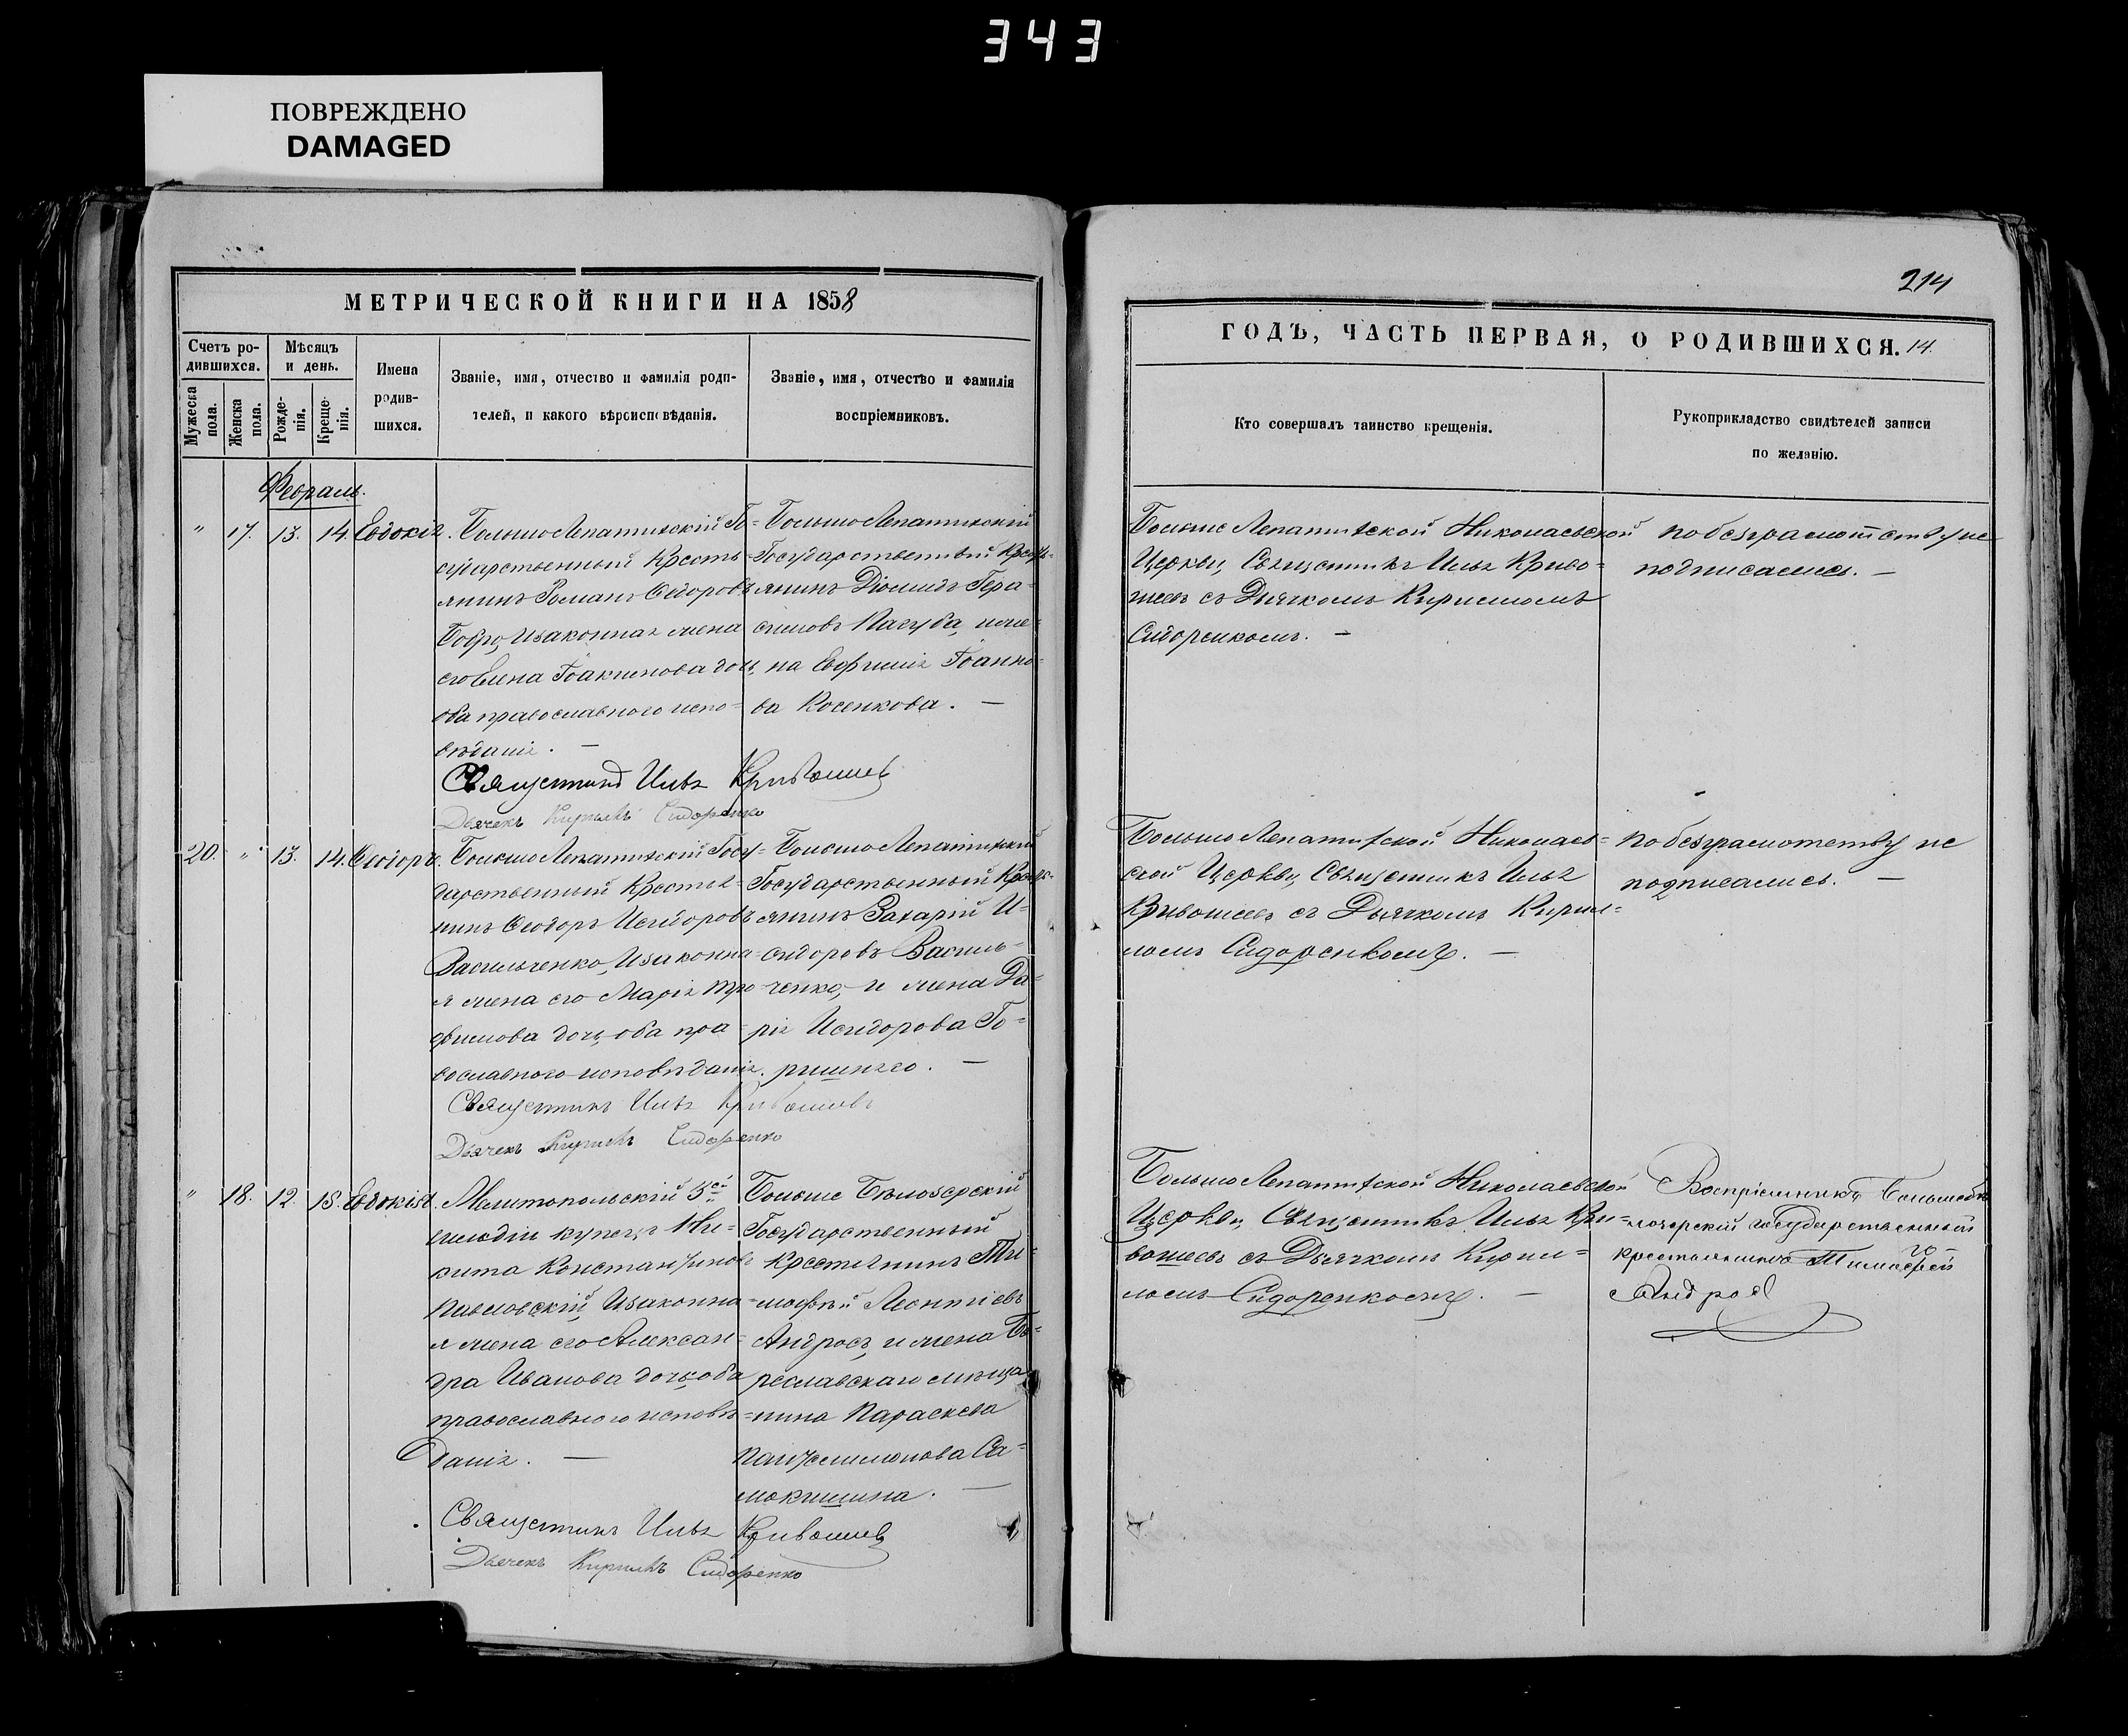 343
ПОВРЕЖДЕНО
DAMAGED
МЕТРИЧЕСКОЙ КНИГИ НА 1858
Счетъ ро-
дившихся.
Мужеска
пола.
Женска
пола.
Мѣсяцъ
и день.
Рожде-
нія.
Креще-
нія.
Имена
родив-
шихся.
Званіе, имя, отчество и фамилія роди-
телей, и какого вѣроисповѣданія.
Званіе, имя, отчество и фамилія
воспріемниковъ.
Февраль.
" 17. 13. 14. Евдокія.
Большо Лепатихскій Го=
сударственный Кресть=
янинъ Романъ Ѳедоровъ
Бобро, изаконная жена
его Елена Іоакимова дочь,
оба православного испо=
вѣданія. —
Большо Лепатихскій
Государственный Кресть=
янинъ Діомидъ Гера=
симовъ Пагуба, и же=
на Евфимія Іоанно=
ва Косенкова. —
Священникъ Илья Кривошеевъ
Дьячекъ Кириллъ Сидоренко
20. " 13. 14. Ѳеодоръ.
Большо Лепатихскій Госу=
дарственный Крестья=
нинъ Ѳеодоръ Исидоровъ
Васильченко, изаконна=
я жена его Марія Тро=
фимова дочь, оба пра=
вославного исповѣданія.
Большо Лепатихскій
Государственный Кресть=
янинъ Захарій И=
сидоровъ Василь=
ченко, и жена Да=
рія Исидорова Го=
ришняго. —
Священникъ Илья Кривошеевъ
Дьячекъ Кириллъ Сидоренко
" 18. 12. 15. Евдокія.
Мелитопольскій 3ей
гильдіи купецъ Ни=
кита Константиновъ
Павловскій, изаконна=
я жена его Алексан=
дра Иванова дочь, оба
православного исповѣ=
данія. —
Больше Бѣлозерскій
Государственный
Крестьянинъ Ти=
мофѣй Леонтіевъ
Андросъ, и жена Бе=
реславскаго мѣща=
нина Параскева
Пантелимонова Са=
мокишина. —
Священникъ Илья Кривошеевъ
Дьячекъ Кириллъ Сидоренко
214
ГОДЪ, ЧАСТЬ ПЕРВАЯ, О РОДИВШИХСЯ. 14.
Кто совершалъ таинство крещенія.
Рукоприкладство свидѣтелей записи
по желанію.
Больше Лепатихской Николаевской
Церкви, Священникъ Илья Криво=
шеевъ съ Дьячкомъ Кирилломъ
Сидоренкомъ. —
по безграмотству не
подписались. —
Большо Лепатихской Николаев=
ской Церкви, Священникъ Илья
Кривошеевъ съ Дьячкомъ Кирил=
ломъ Сидоренкомъ. —
по безграмотству не
подписались. —
Большо Лепатихской Николаевской
Церкви, Священникъ Илья Кри=
вошеевъ съ Дьячкомъ Кирил=
ломъ Сидоренкомъ. —
Воспріемникъ
государственный
крестьянинъ Тимофей
Андрос